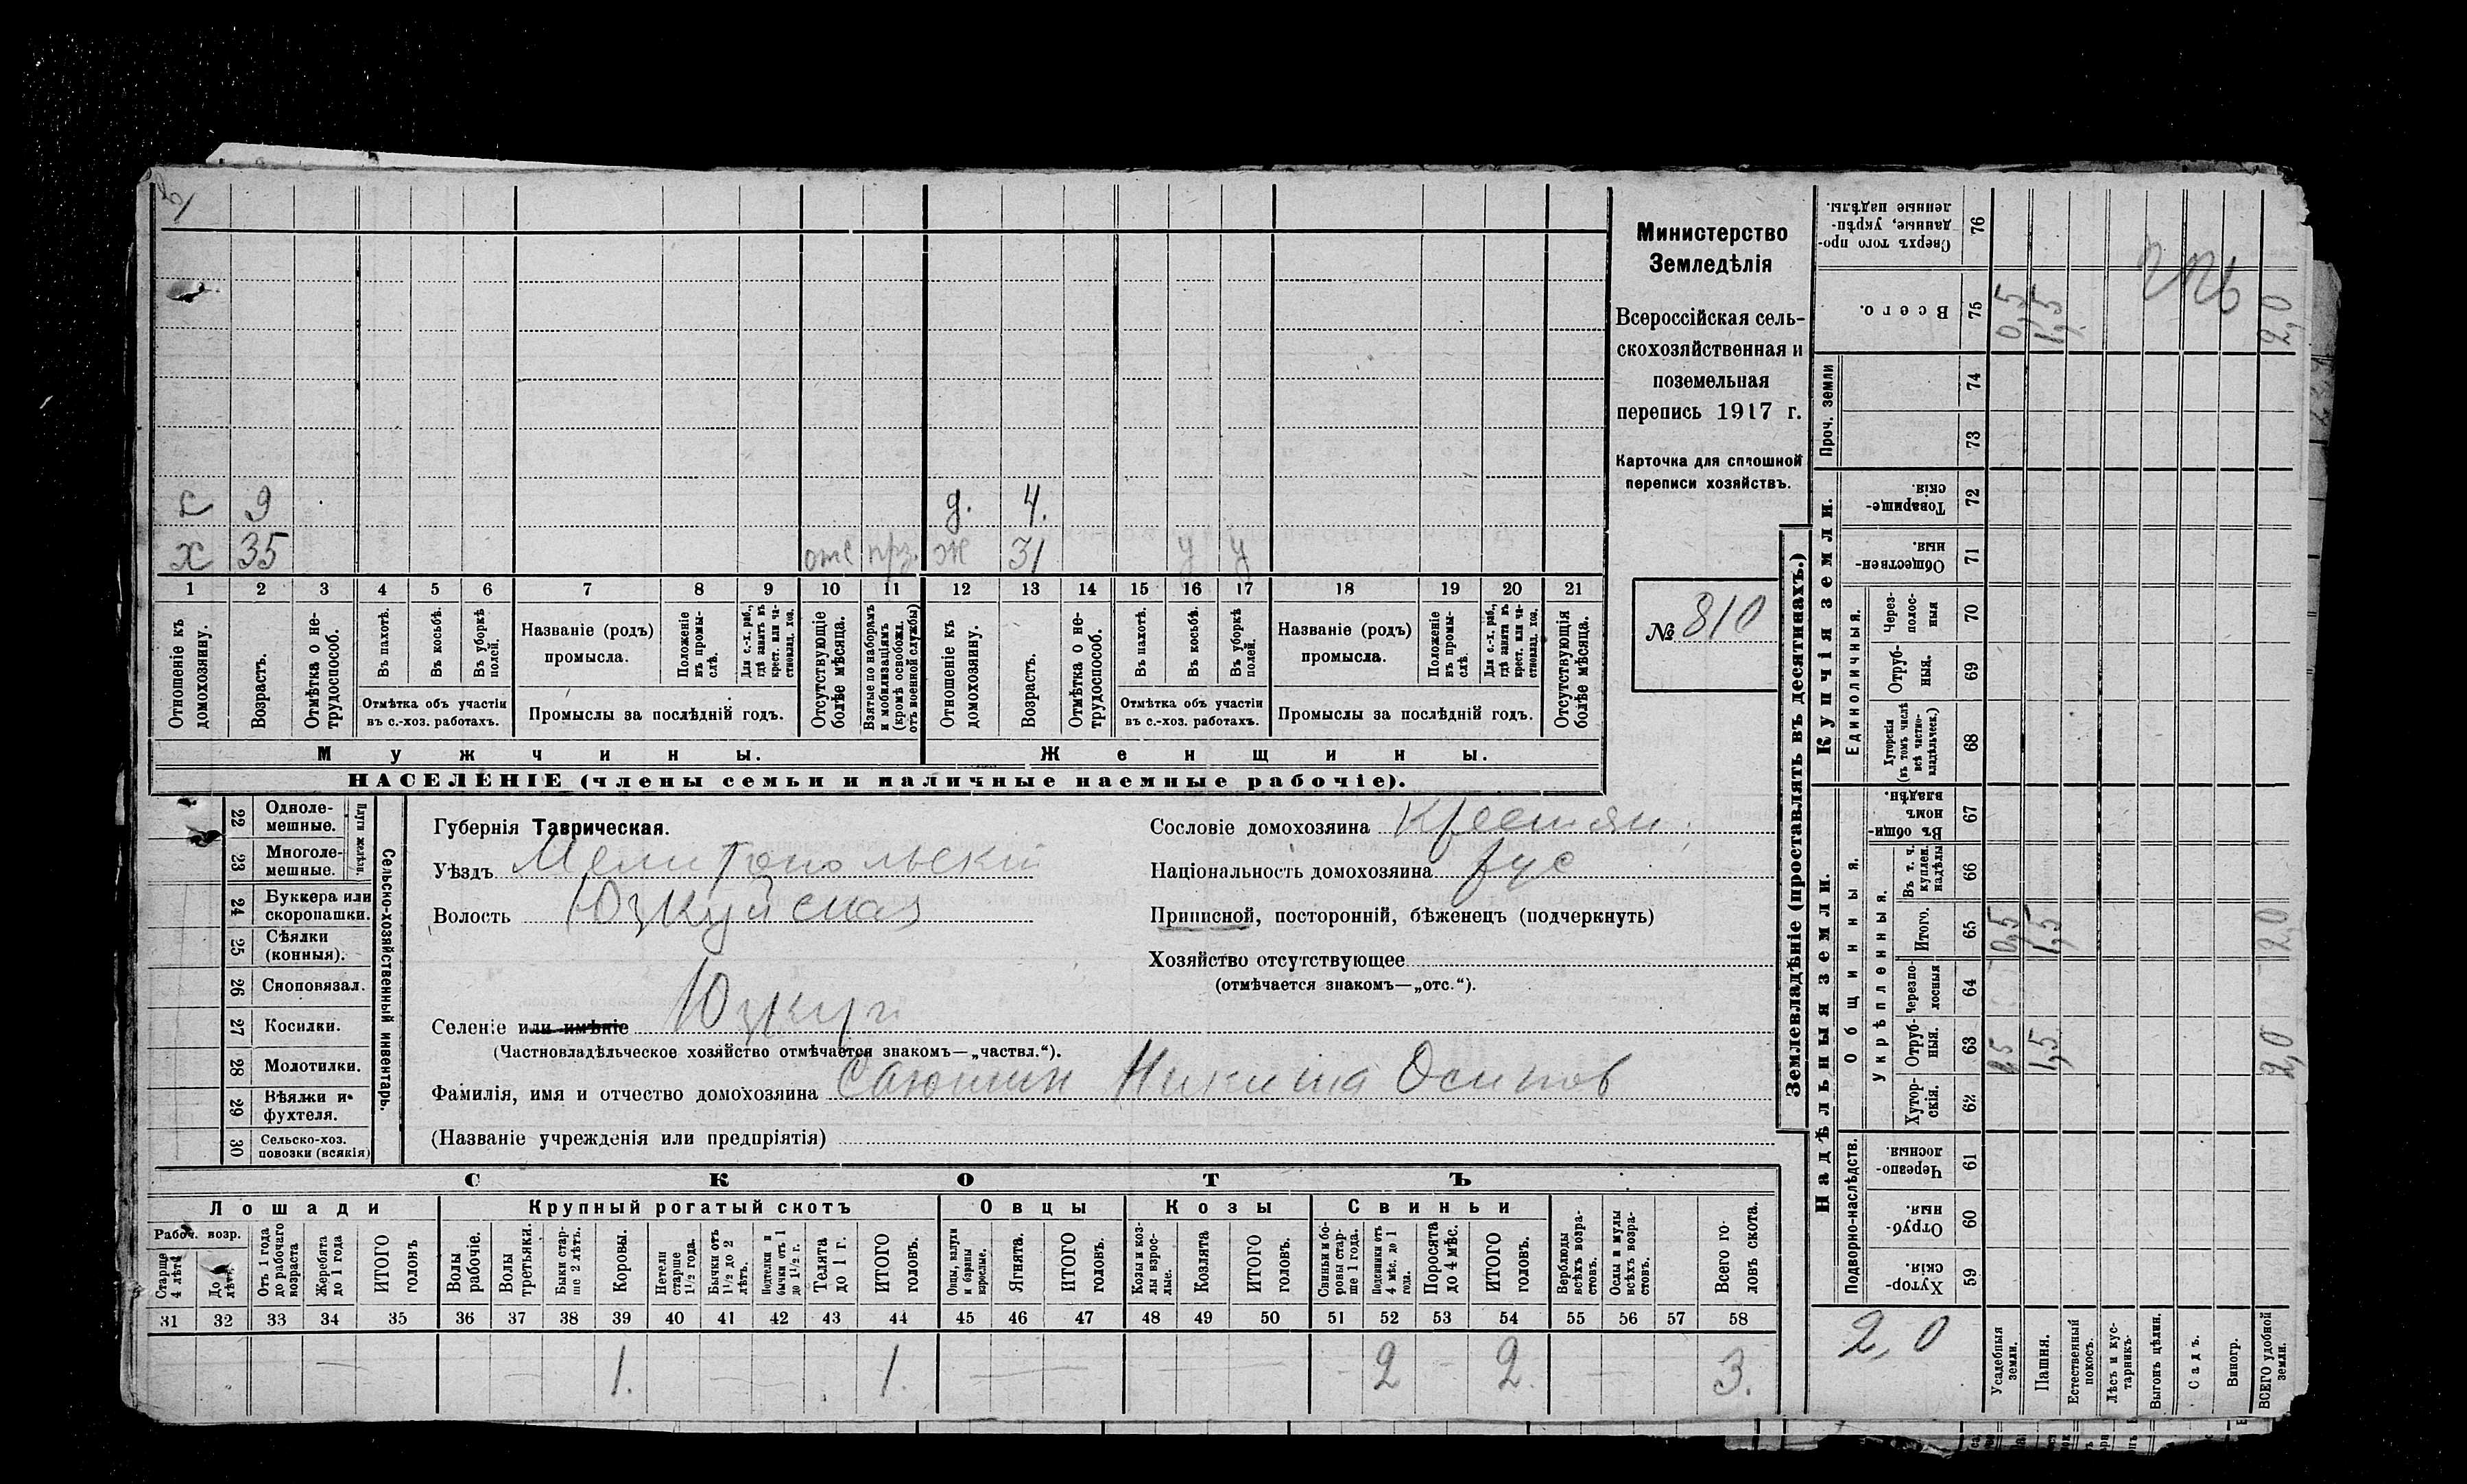 Министерство
Земледѣлія
Всероссійская сель-
скохозяйственная и
поземельная
перепись 1917 г.
Карточка для сплошной
переписи хозяйствъ.
№ 810
с 9 д. 4.
х 35 отс ж 31 у у
1 2 3 4 5 6 7 8 9 10 11 12 13 14 15 16 17 18 19 20 21
Отношеніе къ домохозяину.
Возрастъ.
Отмѣтка о не-трудоспособ.
Въ пахотѣ.
Въ косьбѣ.
Въ уборкѣ полей.
Отмѣтка объ участіи въ с.-хоз. работахъ.
Названіе (родъ) промысла.
Положеніе въ промы-слѣ.
Для с.-х. раб., гдѣ занятъ въ крест. или ча-стновлад. хоз.
Промыслы за послѣдній годъ.
Отсутствующіе болѣе мѣсяца.
Взятые по наборамъ и мобилизаціямъ (кромѣ освобожд. отъ военной службы)
Отношеніе къ домохозяину.
Возрастъ.
Отмѣтка о не-трудоспособ.
Въ пахотѣ.
Въ косьбѣ.
Въ уборкѣ полей.
Отмѣтка объ участіи въ с.-хоз. работахъ.
Названіе (родъ) промысла.
Положеніе въ промы-слѣ.
Для с.-х. раб., гдѣ занята въ крест. или ча-стновлад. хоз.
Промыслы за послѣдній годъ.
Отсутствующія болѣе мѣсяца.
Мужчины. Женщины.
НАСЕЛЕНІЕ (члены семьи и наличные наемные рабочіе).
22 Одноле-мешные.
23 Многоле-мешные.
Плуги желѣзн.
24 Буккера или скоропашки.
25 Сѣялки (конныя).
26 Сноповязал.
27 Косилки.
28 Молотилки.
29 Вѣялки и фухтеля.
30 Сельско-хоз. повозки (всякія)
Сельско-хозяйственный инвентарь.
Губернія Таврическая.
Уѣздъ Мелитопольскій
Волость Юзкуйская
Селеніе или имѣніе Юзкуи
(Частновладѣльческое хозяйство отмѣчается знакомъ—„частвл.“).
Фамилія, имя и отчество домохозяина Никита Осипов
(Названіе учрежденія или предпріятія)
Сословіе домохозяина Крестьян.
Національность домохозяина рус
Приписной, посторонній, бѣженецъ (подчеркнуть)
Хозяйство отсутствующее
(отмѣчается знакомъ—„отс.“).
СКОТЪ
Лошади Крупный рогатый скотъ Овцы Козы Свиньи
Рабоч. возр.
Старше 4 лѣтъ
До лѣтъ
Отъ 1 года до рабочаго возраста
Жеребята до 1 года
ИТОГО головъ
Волы рабочіе.
Волы третьяки.
Быки стар-ше 2 лѣтъ.
Коровы.
Нетели старше 1½ года.
Бычки отъ 1½ до 2 лѣтъ.
Подтелки и бычки отъ 1 до 1½ г.
Телята до 1 г.
ИТОГО головъ.
Овцы, валухи и бараны взрослые.
Ягнята.
ИТОГО головъ.
Козы и коз-лы взрос-лые.
Козлята
ИТОГО головъ.
Свиньи и бо-ровы стар-ше 1 года.
Подсвинки отъ 4 мѣс. до 1 года.
Поросята до 4 мѣс.
ИТОГО головъ.
Верблюды всѣхъ возра-стовъ.
Ослы и мулы всѣхъ возра-стовъ.
Всего го-ловъ скота.
31 32 33 34 35 36 37 38 39 40 41 42 43 44 45 46 47 48 49 50 51 52 53 54 55 56 57 58
1. 1. 2 2. 3.
Землевладѣніе (проставлять въ десятинахъ.)
Надѣльныя земли. Купчія земли. Проч. земли
Подворно-наслѣдств.
Общинныя.
Укрѣпленныя.
Единоличныя.
59 Хутор-скія.
60 Отруб-ныя.
61 Черезпо-лосныя.
62 Хутор-скія.
63 Отруб-ныя. 1,5 2,0
64 Черезпо-лосныя
65 Итого. 0,5 1,5 2,0
66 Въ т. ч. куплен. надѣлы
67 Въ общи-номъ владѣн.
68 Хуторскія (въ томъ числѣ всѣ частно-владѣльческ.)
69 Отруб-ныя.
70 Через-полос-ныя
71 Обществен-ныя.
72 Товарище-скія.
73
74
75 Всего. 0,5 1,5 2,0
76 Сверхъ того про-данные, укрѣп-ленные надѣлы.
2,0
Усадебныя земли.
Пашня.
Естественный покосъ.
Лѣсъ и кус-тарникъ.
Выгонъ цѣлин.
Садъ.
Виногр.
ВСЕГО удобной земли.